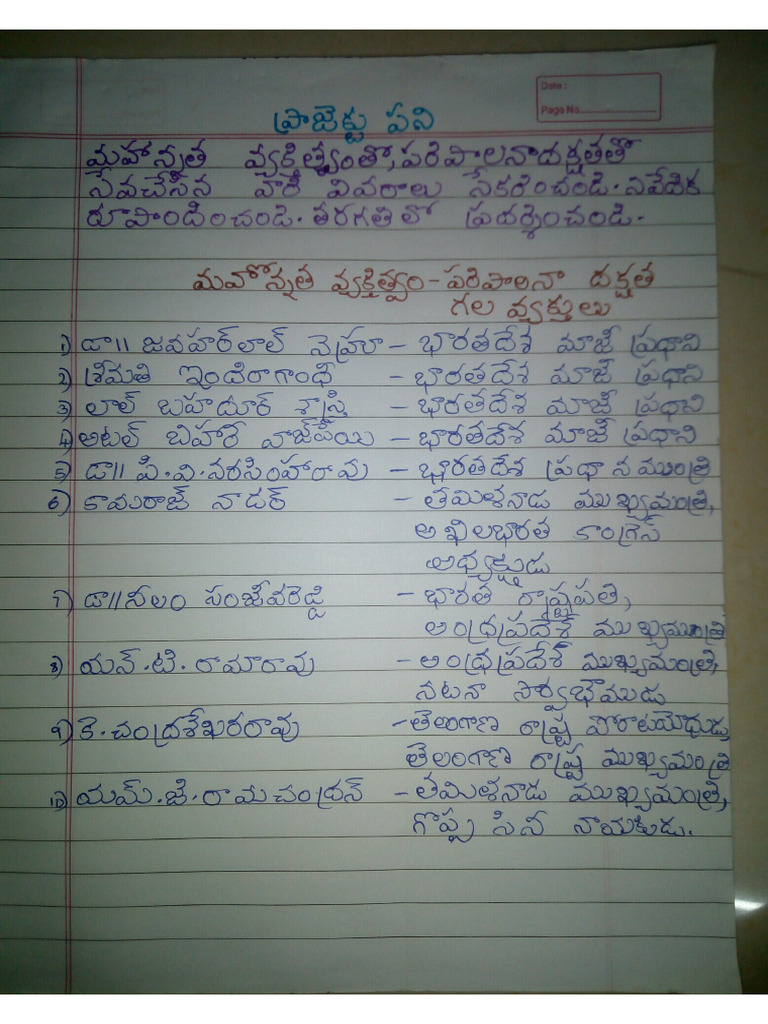 Date :
Page No.
ప్రాజెక్టు పని
మహోన్నత వ్యక్తిత్వంతో, పరిపాలనాదక్షతతో
సేవచేసిన వారి వివరాలు సేకరించండి. నివేదిక
రూపొందించండి. తరగతి లో ప్రదర్శించండి.
మహోన్నత వ్యక్తిత్వం - పరిపాలనా దక్షత
గల వ్యక్తులు
1) డా॥ జవహర్‌లాల్ నెహ్రూ – భారతదేశ మాజీ ప్రధాని
2) శ్రీమతి ఇందిరాగాంధీ – భారతదేశ మాజీ ప్రధాని
3) లాల్ బహదూర్ శాస్త్రి – భారతదేశ మాజీ ప్రధాని
4) అటల్ బిహారీ వాజ్‌పేయి – భారతదేశ మాజీ ప్రధాని
5) డా॥ పి.వి.నరసింహారావు – భారతదేశ ప్రధానమంత్రి
6) కామరాజ్ నాడర్ – తమిళనాడు ముఖ్యమంత్రి,
అఖిలభారత కాంగ్రెస్
అధ్యక్షుడు
7) డా॥నీలం సంజీవరెడ్డి – భారత రాష్ట్రపతి,
ఆంధ్రప్రదేశ్ ముఖ్యమంత్రి
8) యన్.టి.రామారావు – ఆంధ్రప్రదేశ్ ముఖ్యమంత్రి,
నటనా సార్వభౌముడు
9) కె.చంద్రశేఖరరావు – తెలంగాణ రాష్ట్ర పోరాటయోధుడు
తెలంగాణ రాష్ట్ర ముఖ్యమంత్రి
10) యమ్.జి.రామచంద్రన్ – తమిళనాడు ముఖ్యమంత్రి,
గొప్ప సినీ నాయకుడు.